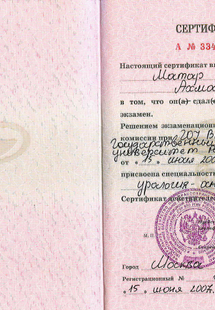 СЕРТИФ
А № 334
Настоящий сертификат в
Матар
Ахма
в том, что он(а) сдал(
экзамен.
Решением экзаменацион
комиссии при ГОУ В
Государственны
университет
от "15" июня 200
присвоена специальнос
урология-
Сертификат действителе
М.П.
Город Москва
Регистрационный №
"15" июня 2007